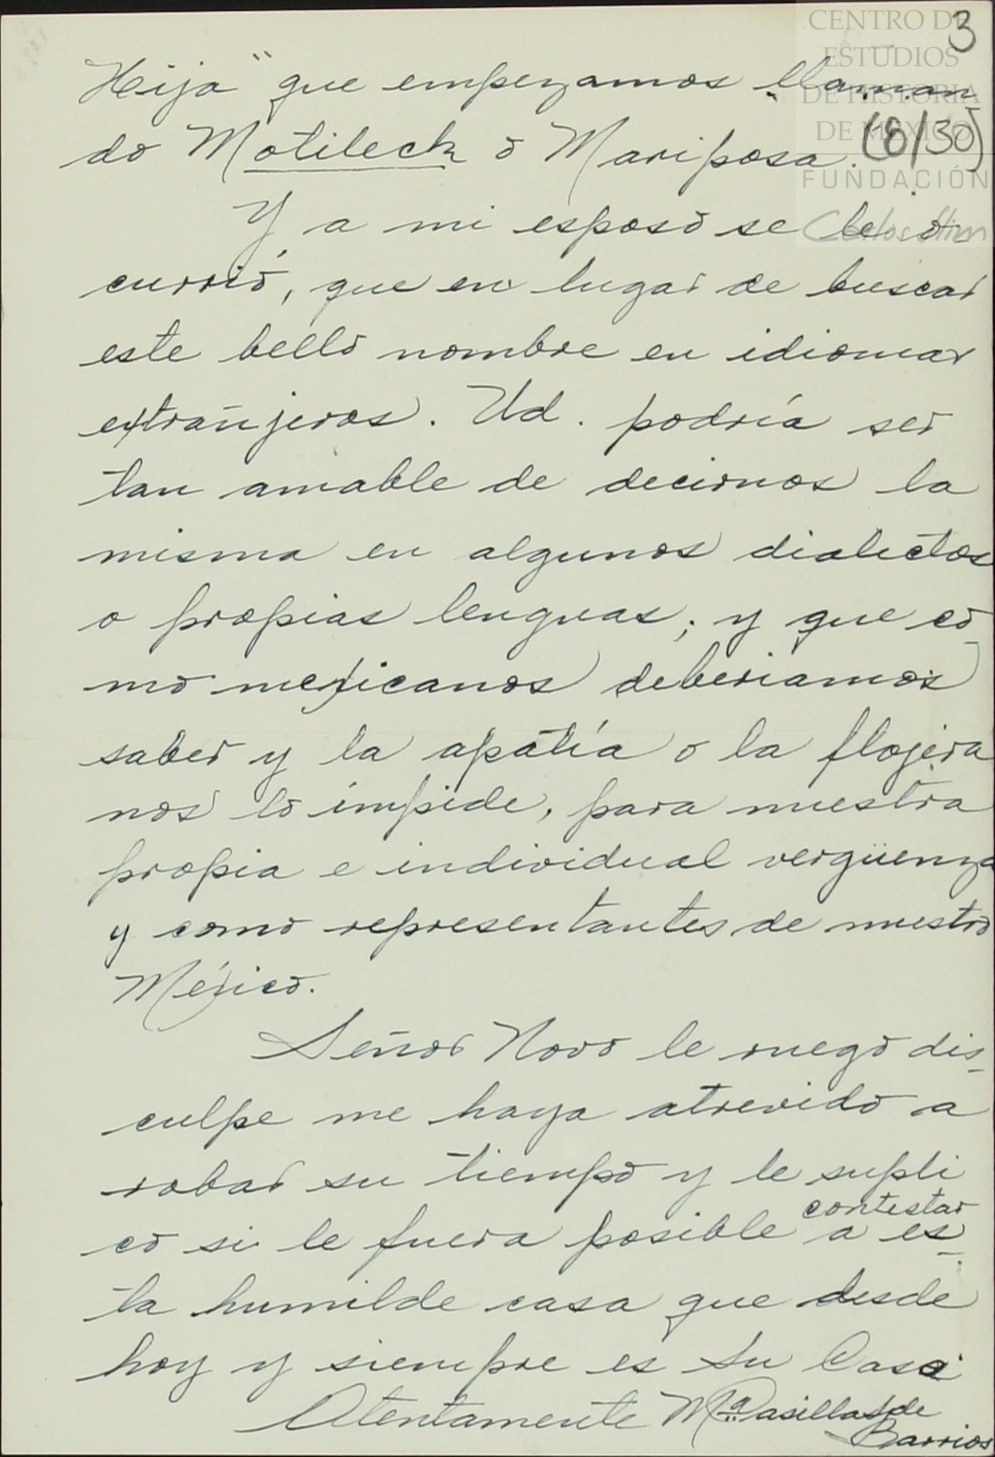 CENTRO DE
ESTUDIOS
DE HISTORIA
DE MÉXICO
FUNDACIÓN
Carlos Slim
3
(6/30)
Hija" que empezamos llaman
do Motileck o Mariposa.
Y a mi esposo se le o-
currió, que en lugar de buscar
este bello nombre en idiomas
extrañjeros. Ud. podría ser
tan amable de decirnos la
misma en algunos dialectos
o propias lenguas; y que co-
mo mexicanos deberiamos
saber y la apatía o la flojera
nos lo impide, para nuestra
propia e individual vergüenza
y como representantes de nuestro
México.
Señor Novo le ruego dis-
culpe me haya atrevido a
robar su tiempo y le supli
co si le fuera posible contestar a es-
ta humilde casa que desde
hoy y siempre es su Casa
Atentamente Ma Casillas de
Barrios